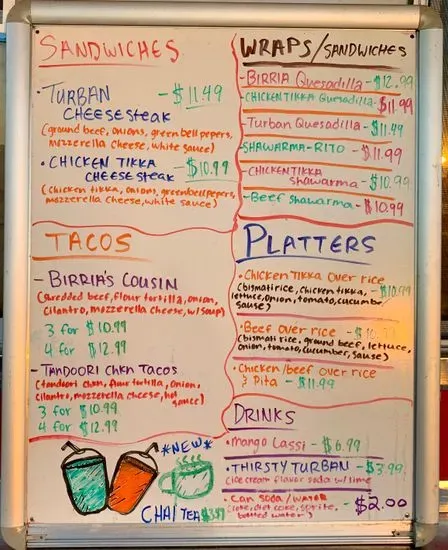 SANDWICHES
• TURBAN - $11.49
CHEESESTEAK
(ground beef, onions, green bell pepers,
mozzerella cheese, white sauce)
• CHICKEN TIKKA - $10.99
CHEESESTEAK
(chicken tikka, onions, greenbellpepers,
mozzerella cheese, white sauce)
TACOS
- BIRRIA'S COUSIN
(shredded beef, flour tortilla, onion,
cilantro, mozzerella cheese, w/soup)
3 for $10.99
4 for $12.99
- TANDOORI CHKN TACOS
(tandoori chkn, flour tortilla, onion,
cilantro, mozzerella cheese, hot
sauce)
3 for $10.99
4 for $12.99
*NEW*
CHAI TEA $3.99
WRAPS/SANDWICHES
- BIRRIA Quesadilla - $12.99
CHICKEN TIKKA Quesadilla - $11.99
Turban Quesadilla - $11.49
- SHAWARMA-RITO - $11.99
- CHICKEN TIKKA
shawarma - $10.99
- Beef shawarma - $10.99
PLATTERS
• Chicken TIKKA over rice
(bismati rice, chicken tikka, - $10.99
lettuce, onion, tomato, cucumber
sause)
• Beef over rice - $10.99
(bismati rice, ground beef, lettuce,
onion, tomato, cucumber, sause)
• Chicken/beef over rice
& Pita - $11.99
DRINKS
• mango Lassi - $6.99
• THIRSTY TURBAN - $3.99
ice cream flavor soda w/lime
• Can soda/WATER - $2.00
(coke, diet coke, sprite,
bottled water)